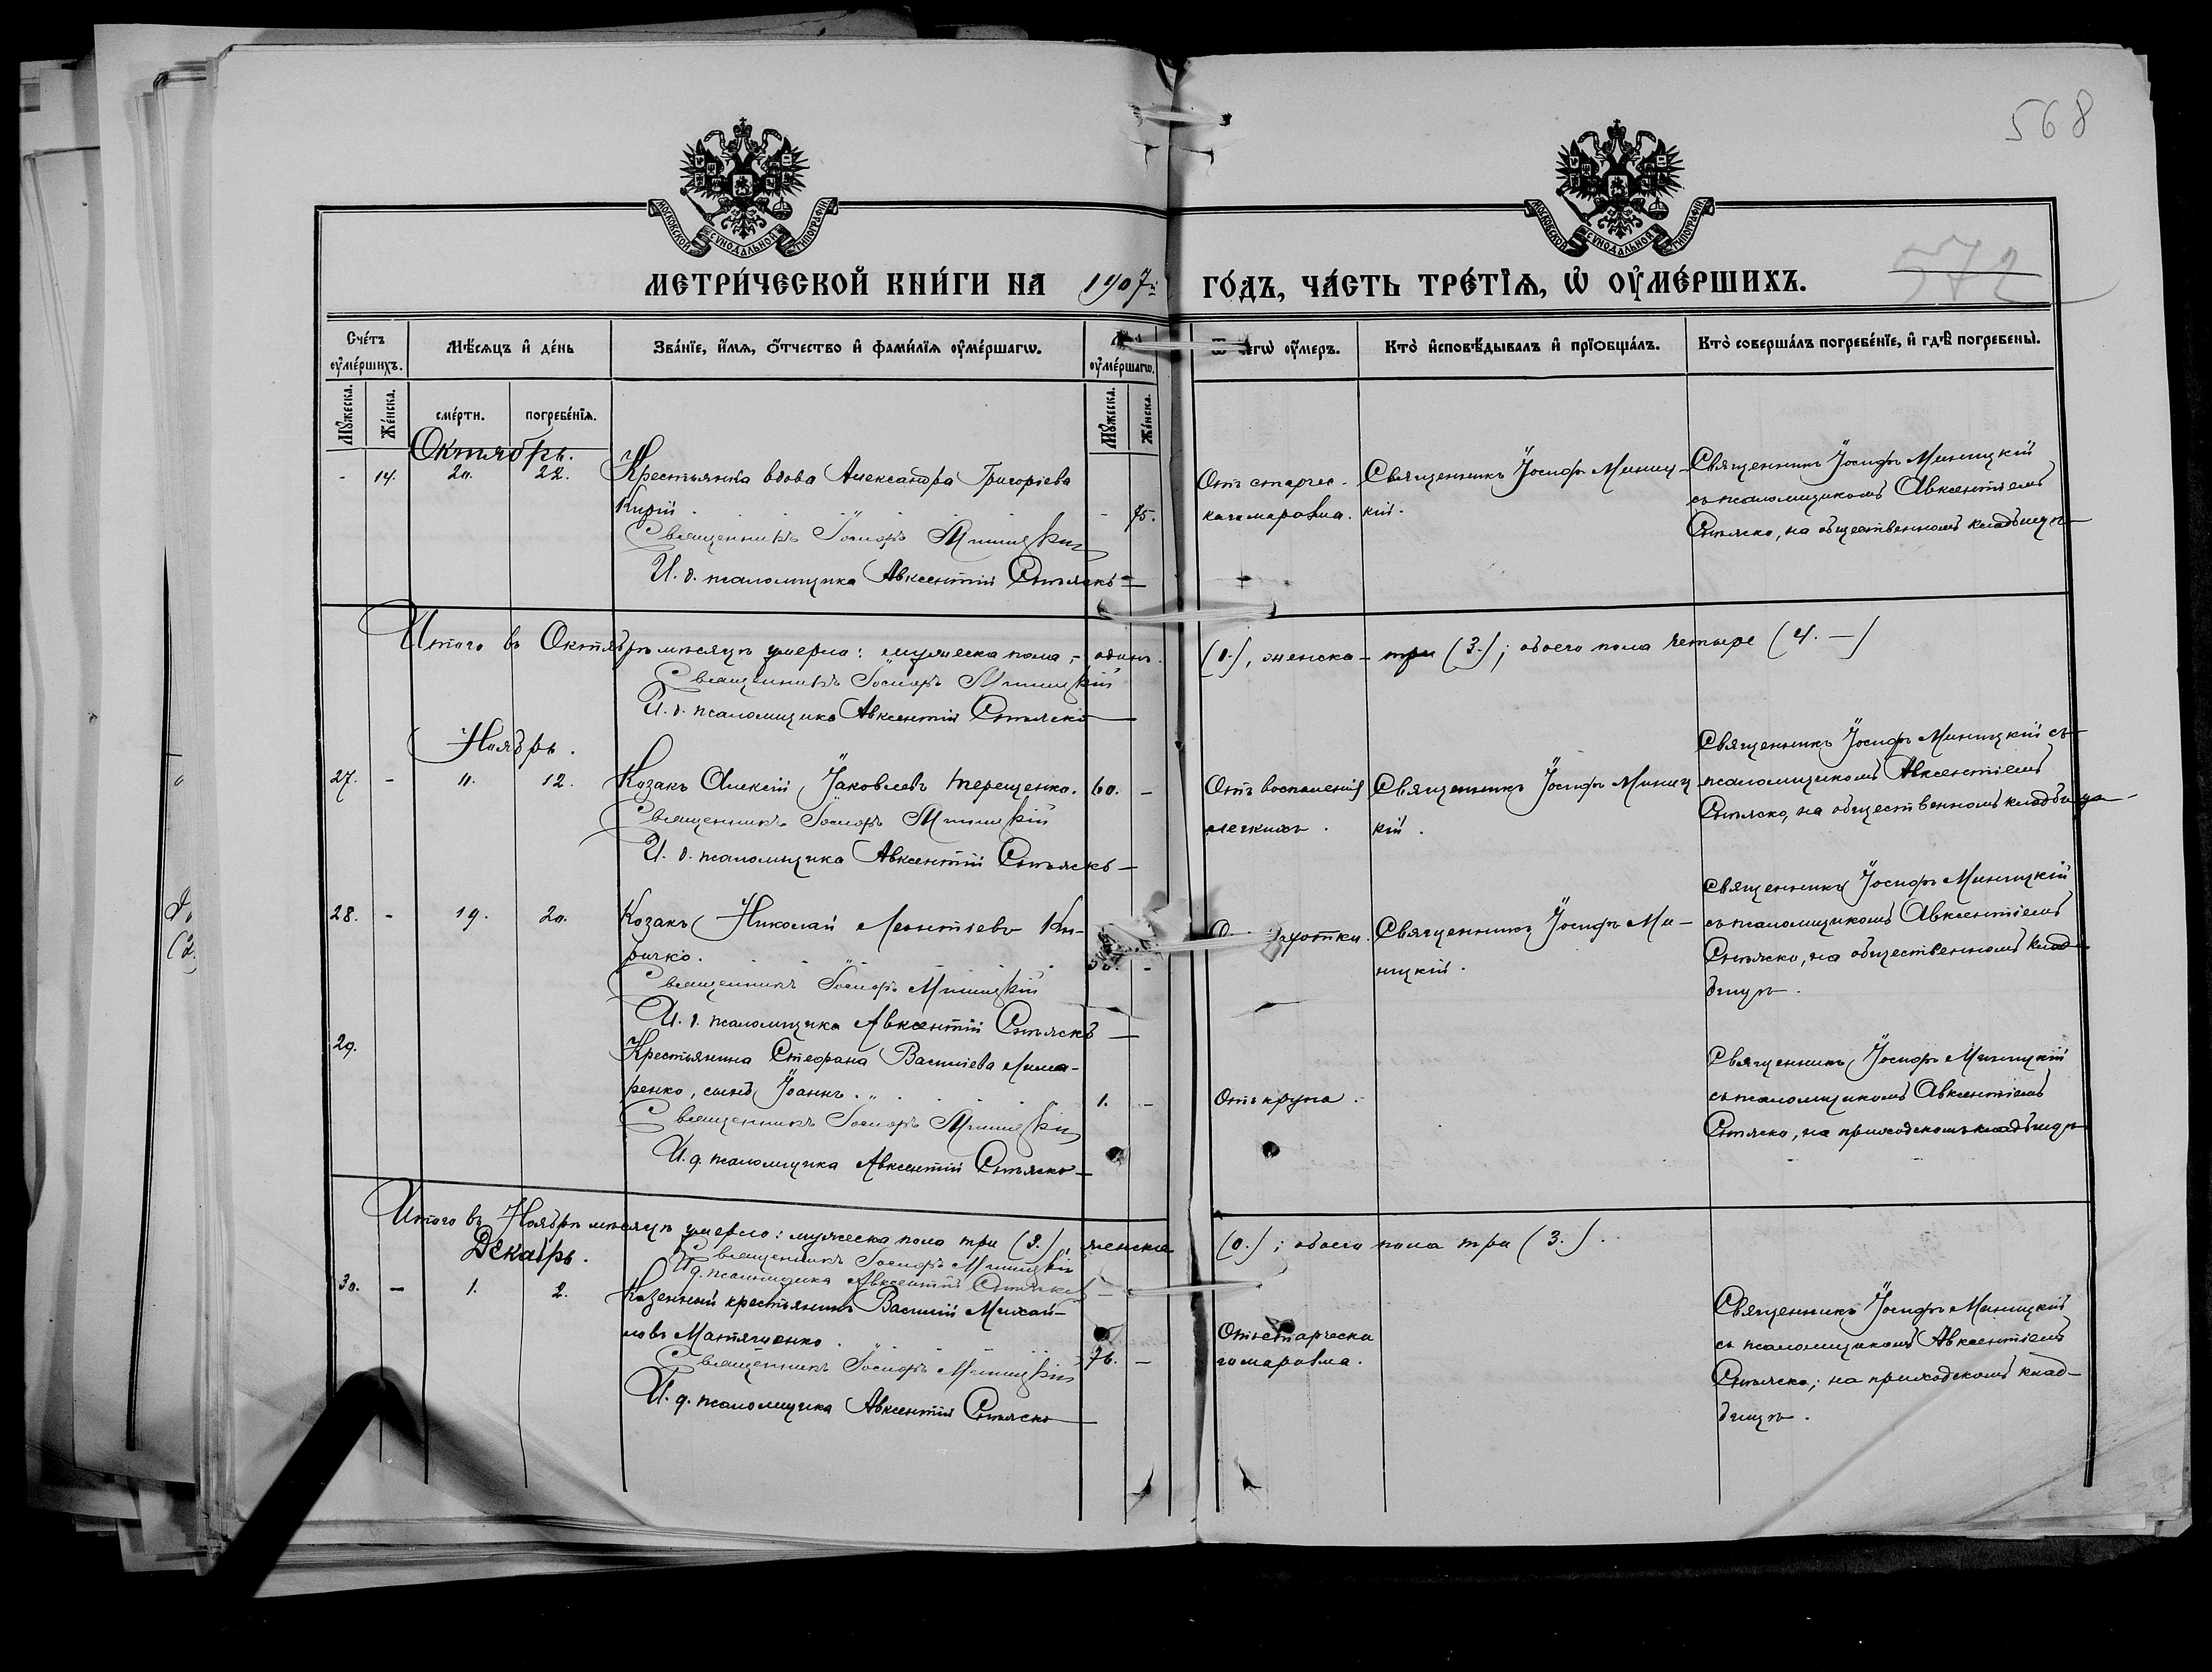 568
572
МОСКОВСКОЙ СУНОДАЛЬНОЙ ТИПОГРАФІИ
МОСКОВСКОЙ СУНОДАЛЬНОЙ ТИПОГРАФІИ
МЕТРИ́ЧЕСКОЙ КНИ́ГИ НА 1907 ГО́ДЪ, ЧА́СТЬ ТРЕ́ТІѦ, Ѡ҆ ОУ҆МЕ́РШИХЪ.
Сче́тъ оу҆ме́ршихъ.
Мѣ́сѧцъ и҆ де́нь
Зва́нїе, и҆́мѧ, ѻ҆́тчество и҆ фами́лїѧ оу҆ме́ршагѡ.
оу҆ме́ршагѡ.
оу҆́меръ.
Кто̀ и҆сповѣ́дывалъ и҆ прїѡбща́лъ.
Кто̀ соверша́лъ погребе́нїе, и҆ гдѣ̀ погребены̀.
Мꙋ́жеска.
Же́нска.
сме́рти.
погребе́нїѧ.
Мꙋ́жеска.
Же́нска.
Октябрь.
- 14. 20. 22. Крестьянка вдова Александра Григоріева
Кирій - 75.
Священникъ Іосифъ Миницкій
И. д. псаломщика Авксентій Сытяско
Отъ старчес-
каго маразма.
Священникъ Іосифъ Миниц-
кій.
Священникъ Іосифъ Миницкій
съ псаломщикомъ Авксентіемъ
Сытяско, на общественномъ кладбищѣ
Итого въ Октябрѣ мѣсяцѣ умерло: мужеска пола - одинъ (1.), женска - три (3.); обоего пола четыре (4. —)
Священникъ Іосифъ Миницкій
И. д. псаломщика Авксентій Сытяско
Ноябрь.
27. - 11. 12. Козакъ Алексій Іаковлевъ Терещенко. 60. -
Священникъ Іосифъ Миницкій
И. д. псаломщика Авксентій Сытяско
Отъ воспаленія
легкихъ.
Священникъ Іосифъ Миниц
кій.
Священникъ Іосифъ Миницкій съ
псаломщикомъ Авксентіемъ
Сытяско, на общественномъ кладбищѣ
28. - 19. 20. Козакъ Николай Леонтіевъ Ки-
ричко. -
Священникъ Іосифъ Миницкій
И. д. псаломщика Авксентій Сытяско
чахотки.
Священникъ Іосифъ Ми-
ницкій.
Священникъ Іосифъ Миницкій
съ псаломщикомъ Авксентіемъ
Сытяско, на общественномъ клад-
бищѣ.
29. Крестьянина Стефана Василіева Лима-
ренко, сынъ Іоаннъ. 1. -
Священникъ Іосифъ Миницкій
И. д. псаломщика Авксентій Сытяско
Отъ крупа.
Священникъ Іосифъ Миницкій
съ псаломщикомъ Авксентіемъ
Сытяско, на приходскомъ кладбищѣ
Итого въ Ноябрѣ мѣсяцѣ умерло: мужеска пола три (3.), женска (0.); обоего пола три (3.).
Священникъ Іосифъ Миницкій
И. д. псаломщика Авксентій Сытяско
Декабрь.
30. — 1. 2. Казенный крестьянинъ Василій Михай-
ловъ Матященко. 76. —
Священникъ Іосифъ Миницкій
И. д. псаломщика Авксентій Сытяско
Отъ старческа
го маразма.
Священникъ Іосифъ Миницкій
съ псаломщикомъ Авксентіемъ
Сытяско; на приходскомъ клад-
бищѣ.